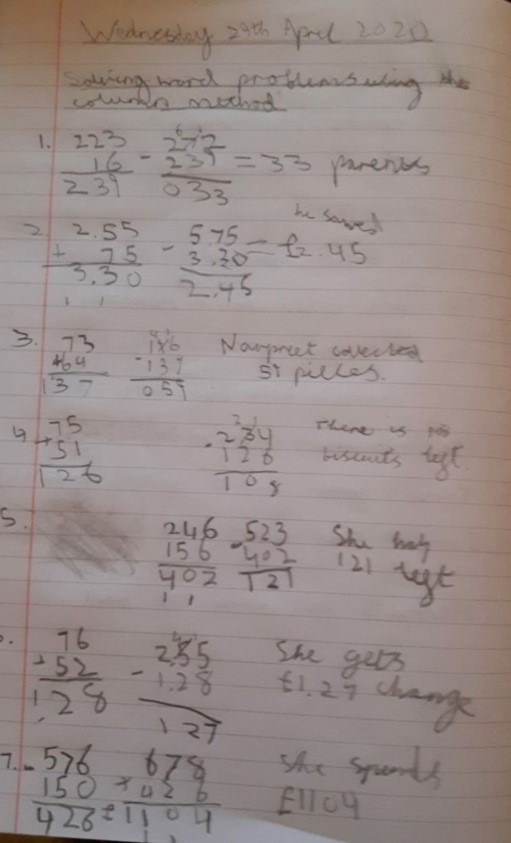 Wednesday 29th April 2020
Solving word problems using the
column method
1. 223 272
16 - 239 = 33 parents
239 033
he saved
2 2.55 5.75
+ 75 - 3.30 = £2.45
3.30 2.45
3. 73 196 Navpreet collected
+64 -137 59 pilles.
137 059
4 75 234 There is
+51 - 126 biscuits left
126 108
5. 246 523 She has
156 - 402 121 left
402 121
76 2.55 She gets
+52 - 1.28 £1.27 change
1.28 1.27
7. - 576 678 She spends
150 + 426 £1104
426 = 1104